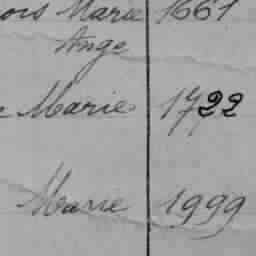 ois Marie 1661
Ange
Marie 1722
Marie 1999